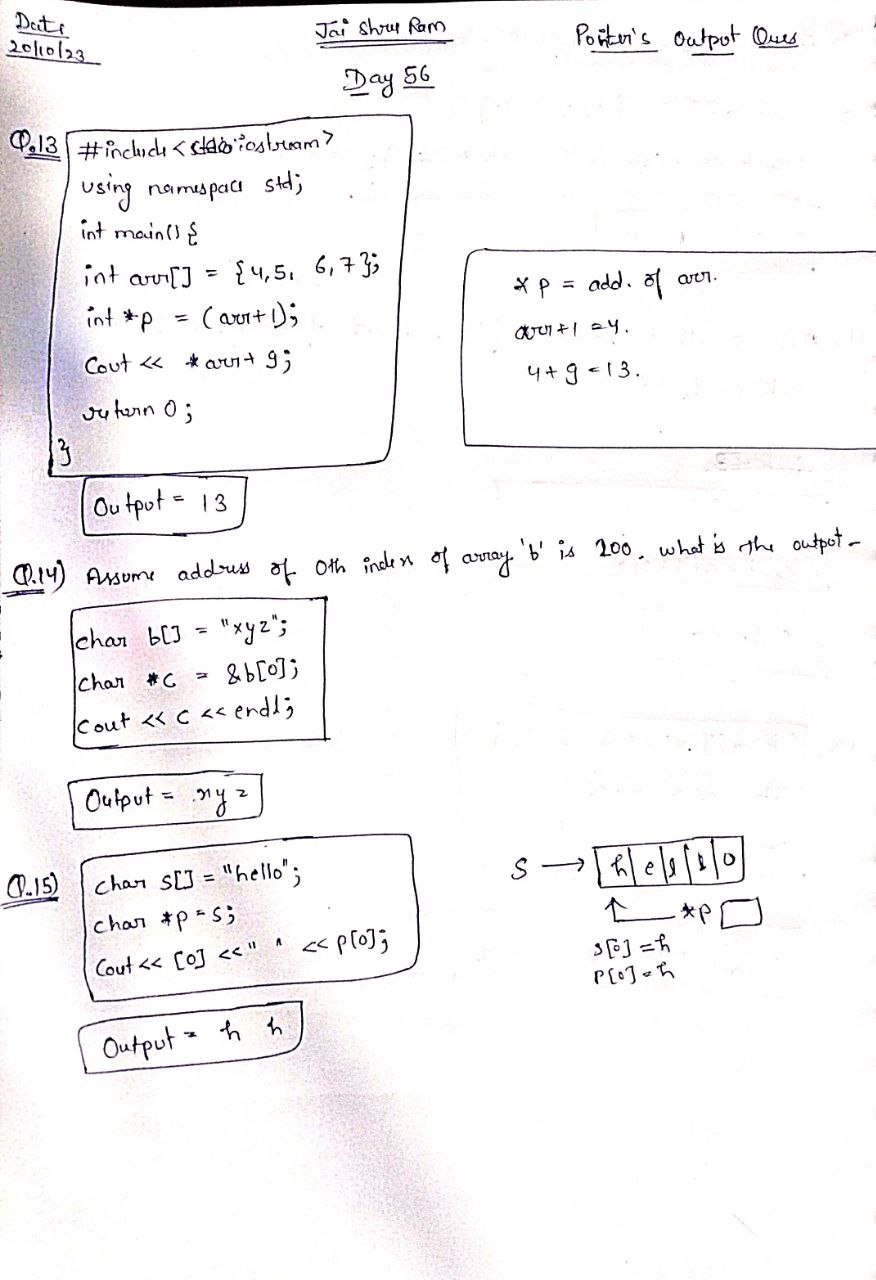 Date
20/10/23
Jai Shree Ram
Pointer's Output Ques
Day 56
Q.13
#include <iostream>
using namespace std;
int main() {
int arr[] = {4,5, 6,7};
int *p = (arr+1);
Cout << *arr+9;
return 0;
}
* p = add. of arr.
arr+1 = 4.
4+9 = 13.
Output = 13
Q.14) Assume address of 0th index of array 'b' is 200. what is the output -
char b[] = "xyz";
char *c = &b[0];
Cout << c << endl;
Output = xyz
Q.15)
char s[] = "hello";
char *p = s;
Cout << [0] << " " << p[0];
S → h e l l o
*p
s[0] = h
p[0] = h
Output = h h